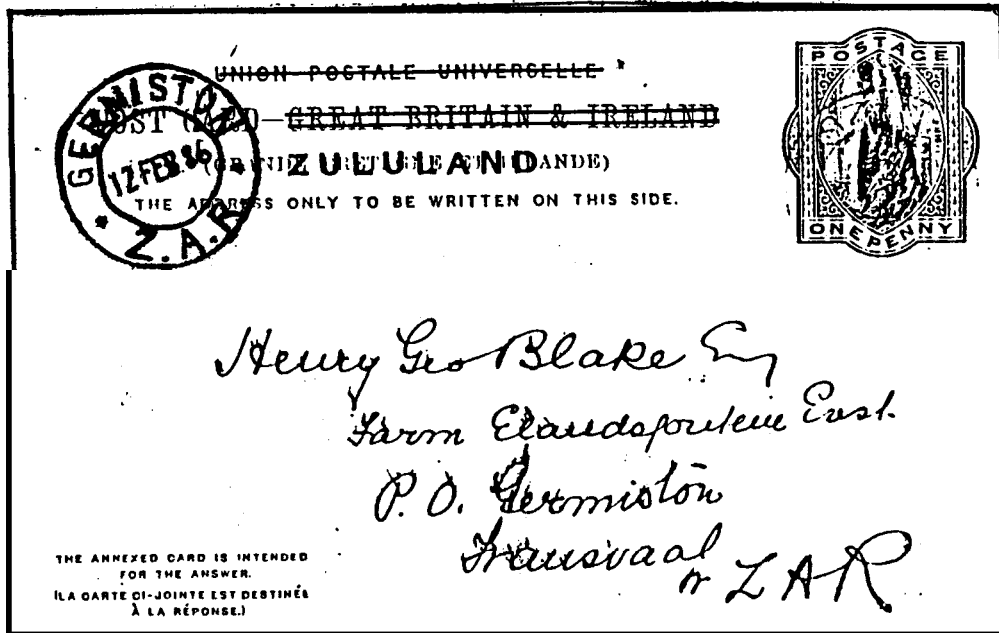 UNION POSTALE UNIVERSELLE
POST CARD—GREAT BRITAIN & IRELAND
(GRANDE BRETAGNE ET IRLANDE)
ZULULAND
THE ADDRESS ONLY TO BE WRITTEN ON THIS SIDE.
GERMISTON
12 FEB 96
Z.A.R
POSTAGE
ONE PENNY
Henry Geo Blake Esq
Farm Elandsfontein East.
P.O. Germiston
Transvaal
or Z A R
THE ANNEXED CARD IS INTENDED
FOR THE ANSWER.
(LA CARTE CI-JOINTE EST DESTINÉE
À LA RÉPONSE.)